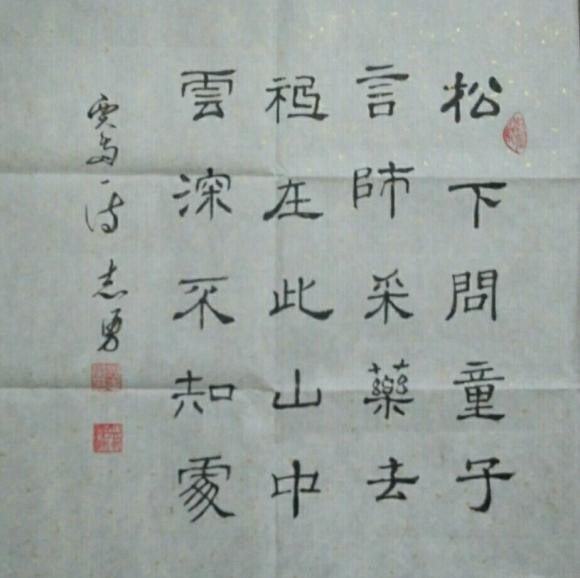 松下問童子
言師采藥去
祇在此山中
雲深不知處
賈島一詩 志勇